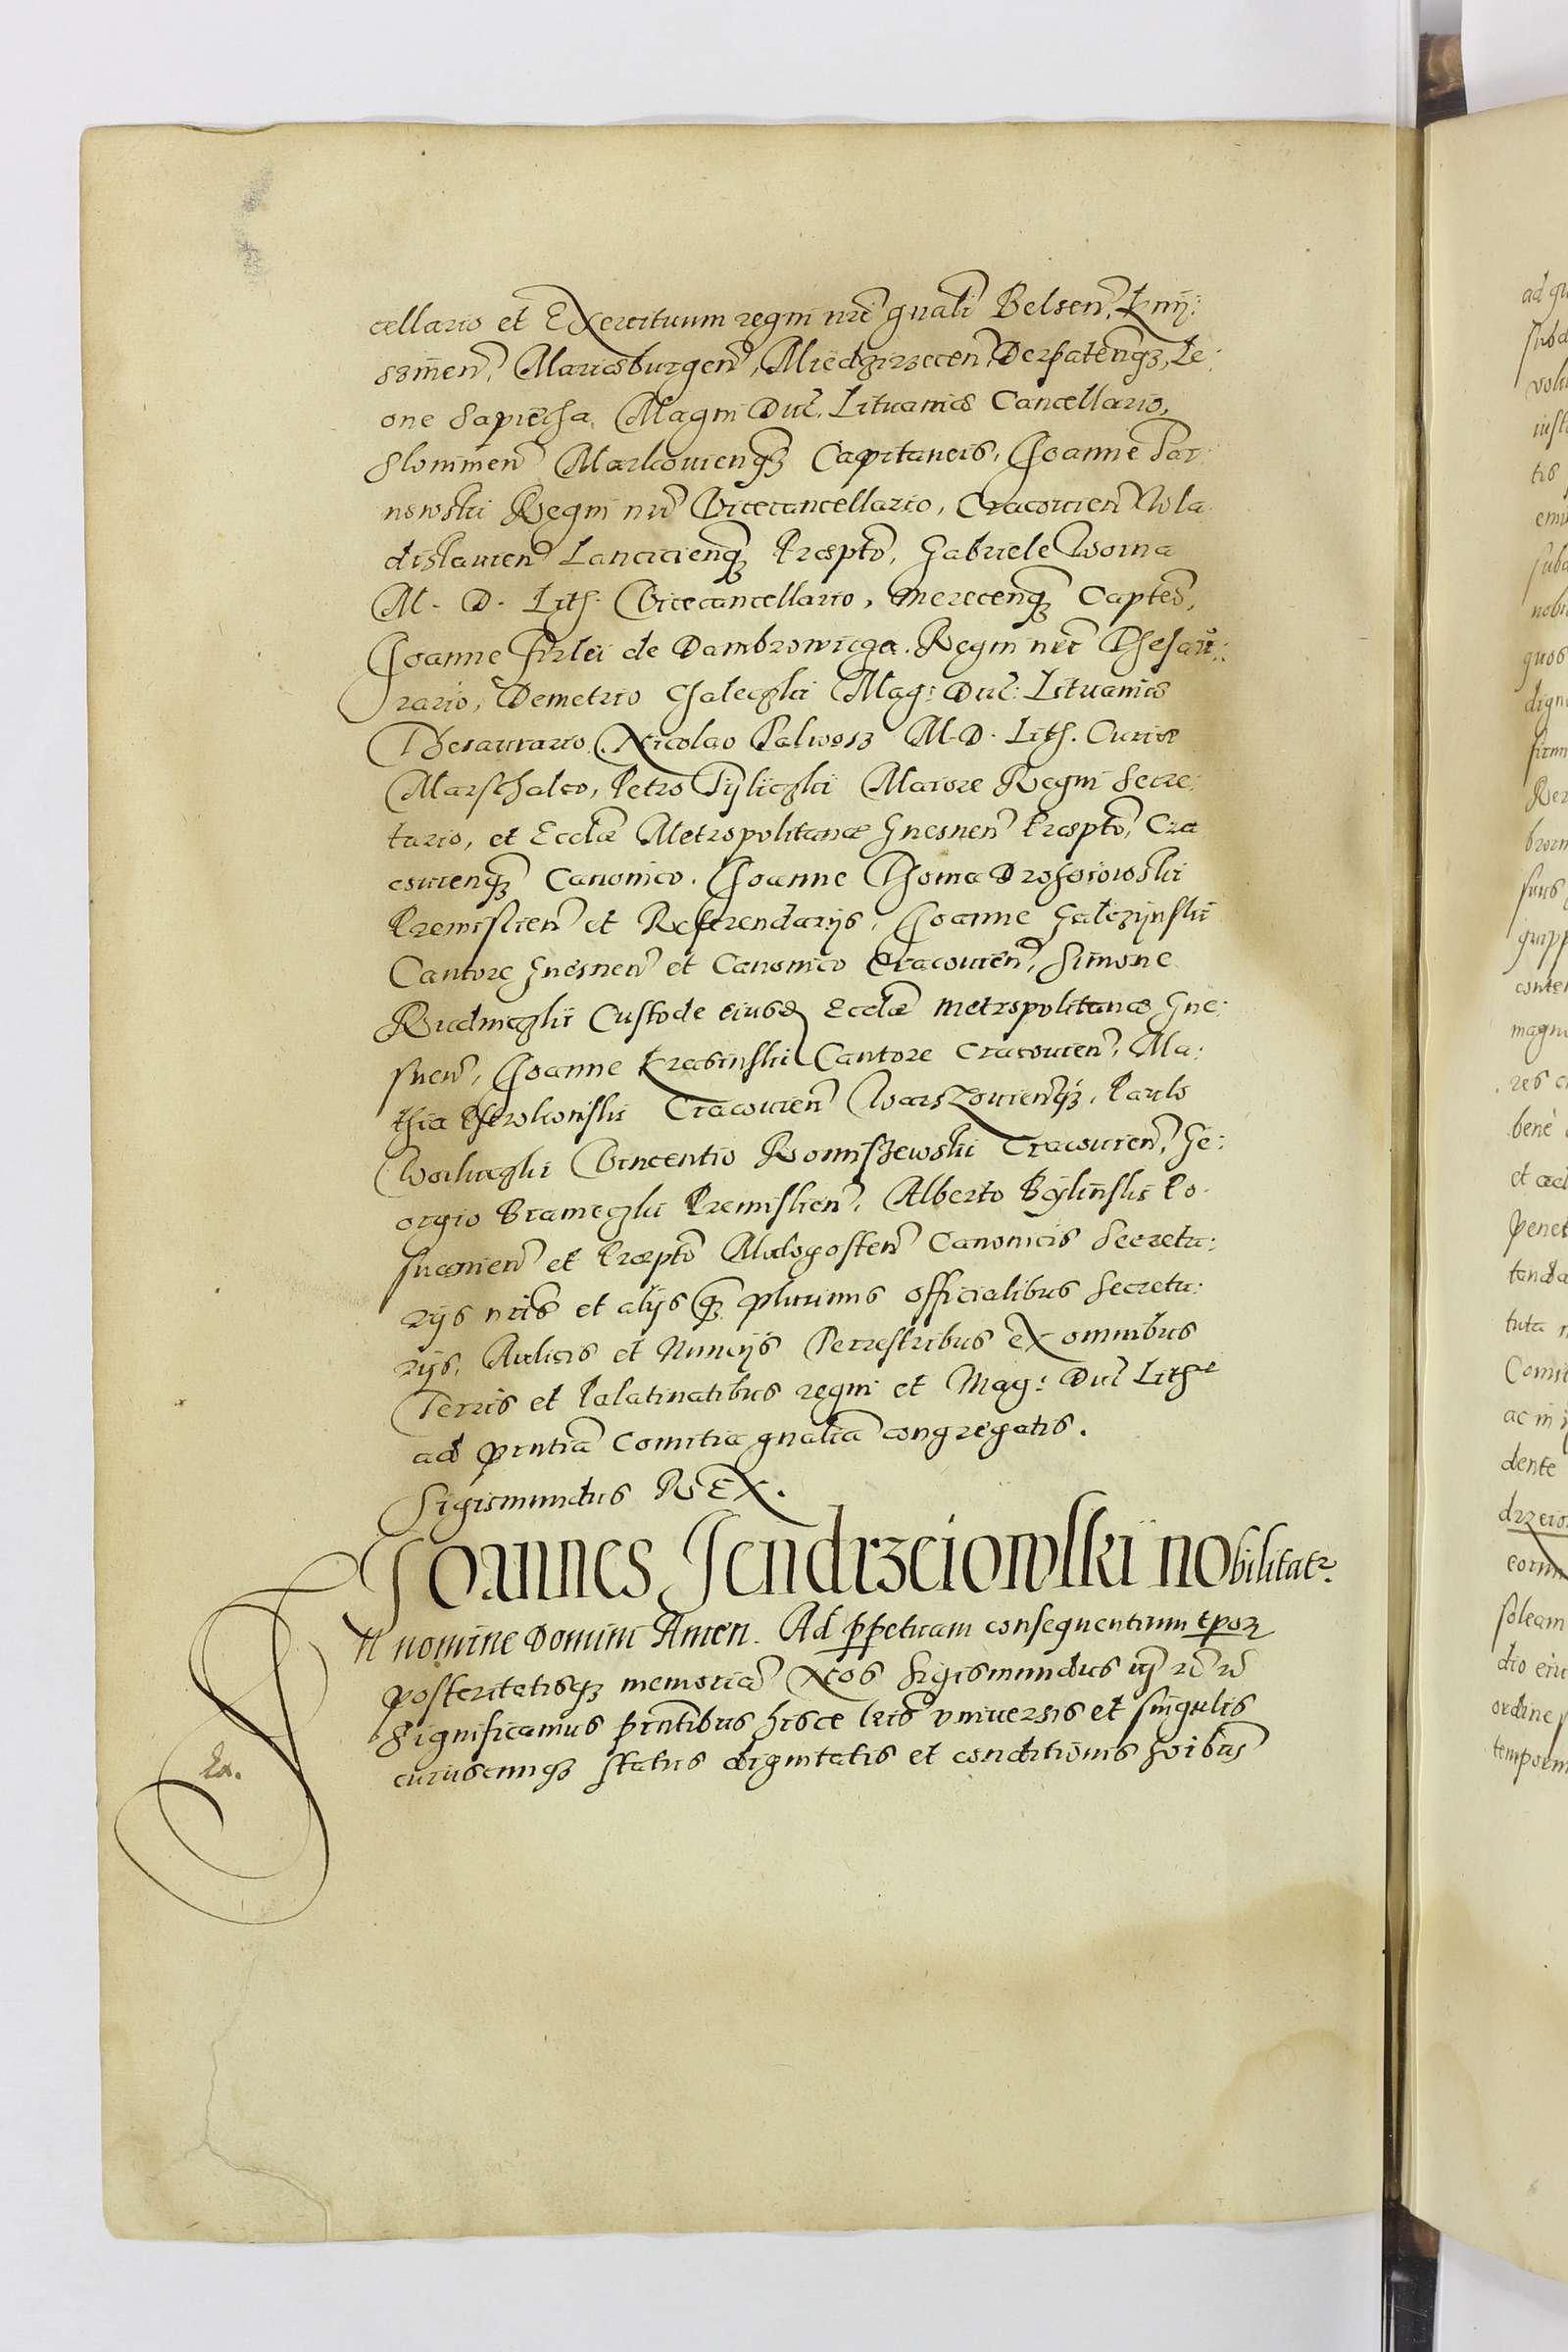 cellario et Exercituum regni nr̃i gnãli Belsen̄, Knÿ:
szinen̄, Mariæburgen̄, Miedzirzecen̄, Derpatenq̃, Le:
one Sapieha, Magni Duc̃. Lituaniæ Cancellario,
Slonimen̄ Markouienq̃ Capitaneis, Joanne Tar
nowski Regni nr̃i Vicecancellario, Cracouien̄ Wla
dislauien̄ Lancicienq̃ Præpto͂, Gabriele Woina
M. D. Lith. Vicecancellario, Merecenq̃ Capteo͂,
Joanne Firlei de Dambrowicza. Regni nr̃i Thesau:
rario, Demetrio Chaleczki Mag: Duc̃: Lituaniæ
Thesaurario, Nicolao Talwosz M. D. Lith. Curiæ
Marschalco, Petro Tÿliczki Maiore Regni Secre:
tario, et Eccl̃æ Metropolitanæ Gnesnen̄ Præpto͂, Cra
couienq̃ Canonico. Joanne Thoma Drohoiowski
Premislien̄ et Referendarijs, Joanne Galczÿnski
Cantore Gnesnen̄ et Canonico Cracouien̄, Simone
Rudniczki Custode eiusd Eccl̃æ Metropolitanæ Gne:
snen̄, Joanne Krasinski Cantore Cracouien̄, Ma:
thia Pstrokonski Cracouien̄ Warszouienq̃, Paulo
Woluczki Vincentio Romiszewski Cracouien̄, Ge:
orgio Brameczki Premislien̄, Alberto Bÿlinski Po
snanien̄ et Præpto͂ Malogosten̄ Canonicis Secreta:
rijs nr̃is et alijs q̃ plurimis officialibus Secreta:
rijs, Aulicis et Nuncijs Terrestribus ex omnibus
Terris et Palatinatibus regni et Mag: Duc̃ Lith͞æ
ad pñtia Comitia gnãlia congregatis.
Sigismundus REX.
Joannes Jendrzeiowski nobilitatr.
In nomine Domini Amen. Ad ꝑpetuam consequentium tp̃oꝝ
posteritatisq̃ memoriã Nos Sigismundus iij rẽ rẽ
Significamus pñtibus hisce lr̃is vniuersis et singulis
cuiuscunq̃ status dignitatis et conditionis hoibus̃